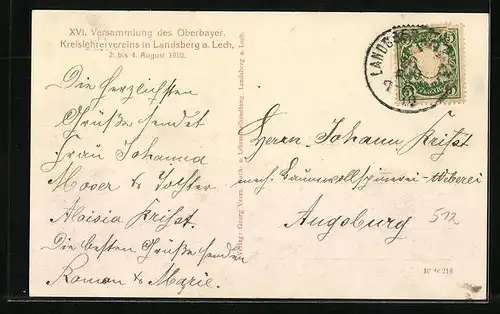 XVI. Versammlung des Oberbayer.
Kreislehrervereins in Landsberg a. Lech,
2. bis 4. August 1910.
Die herzlichsten
Grüße sendet
Frau Johanna
Moser & Tochter
Aloisia Krißt.
Die besten Grüße senden
Roman & Marie.
Verlag: Georg Verza, Buch- u. Lehrmittelhandlung, Landsberg a. Lech.
LANDSBERG
5
5
Herrn Johann Krißt
mech. Baumwollspinnerei-Weberei
Augsburg
512